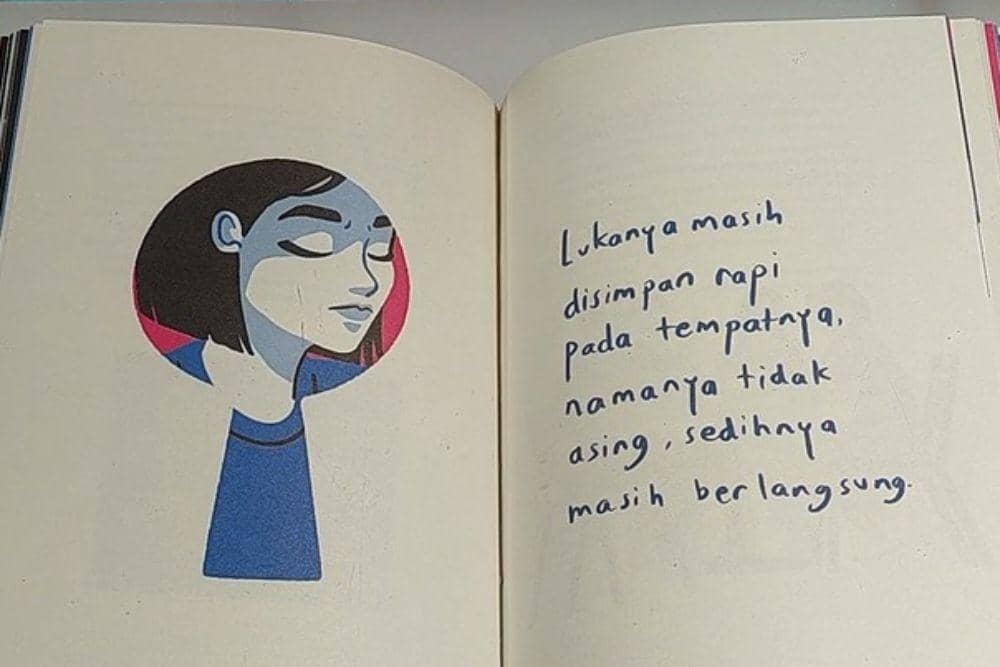 Lukanya masih
disimpan rapi
pada tempatnya,
namanya tidak
asing, sedihnya
masih berlangsung.